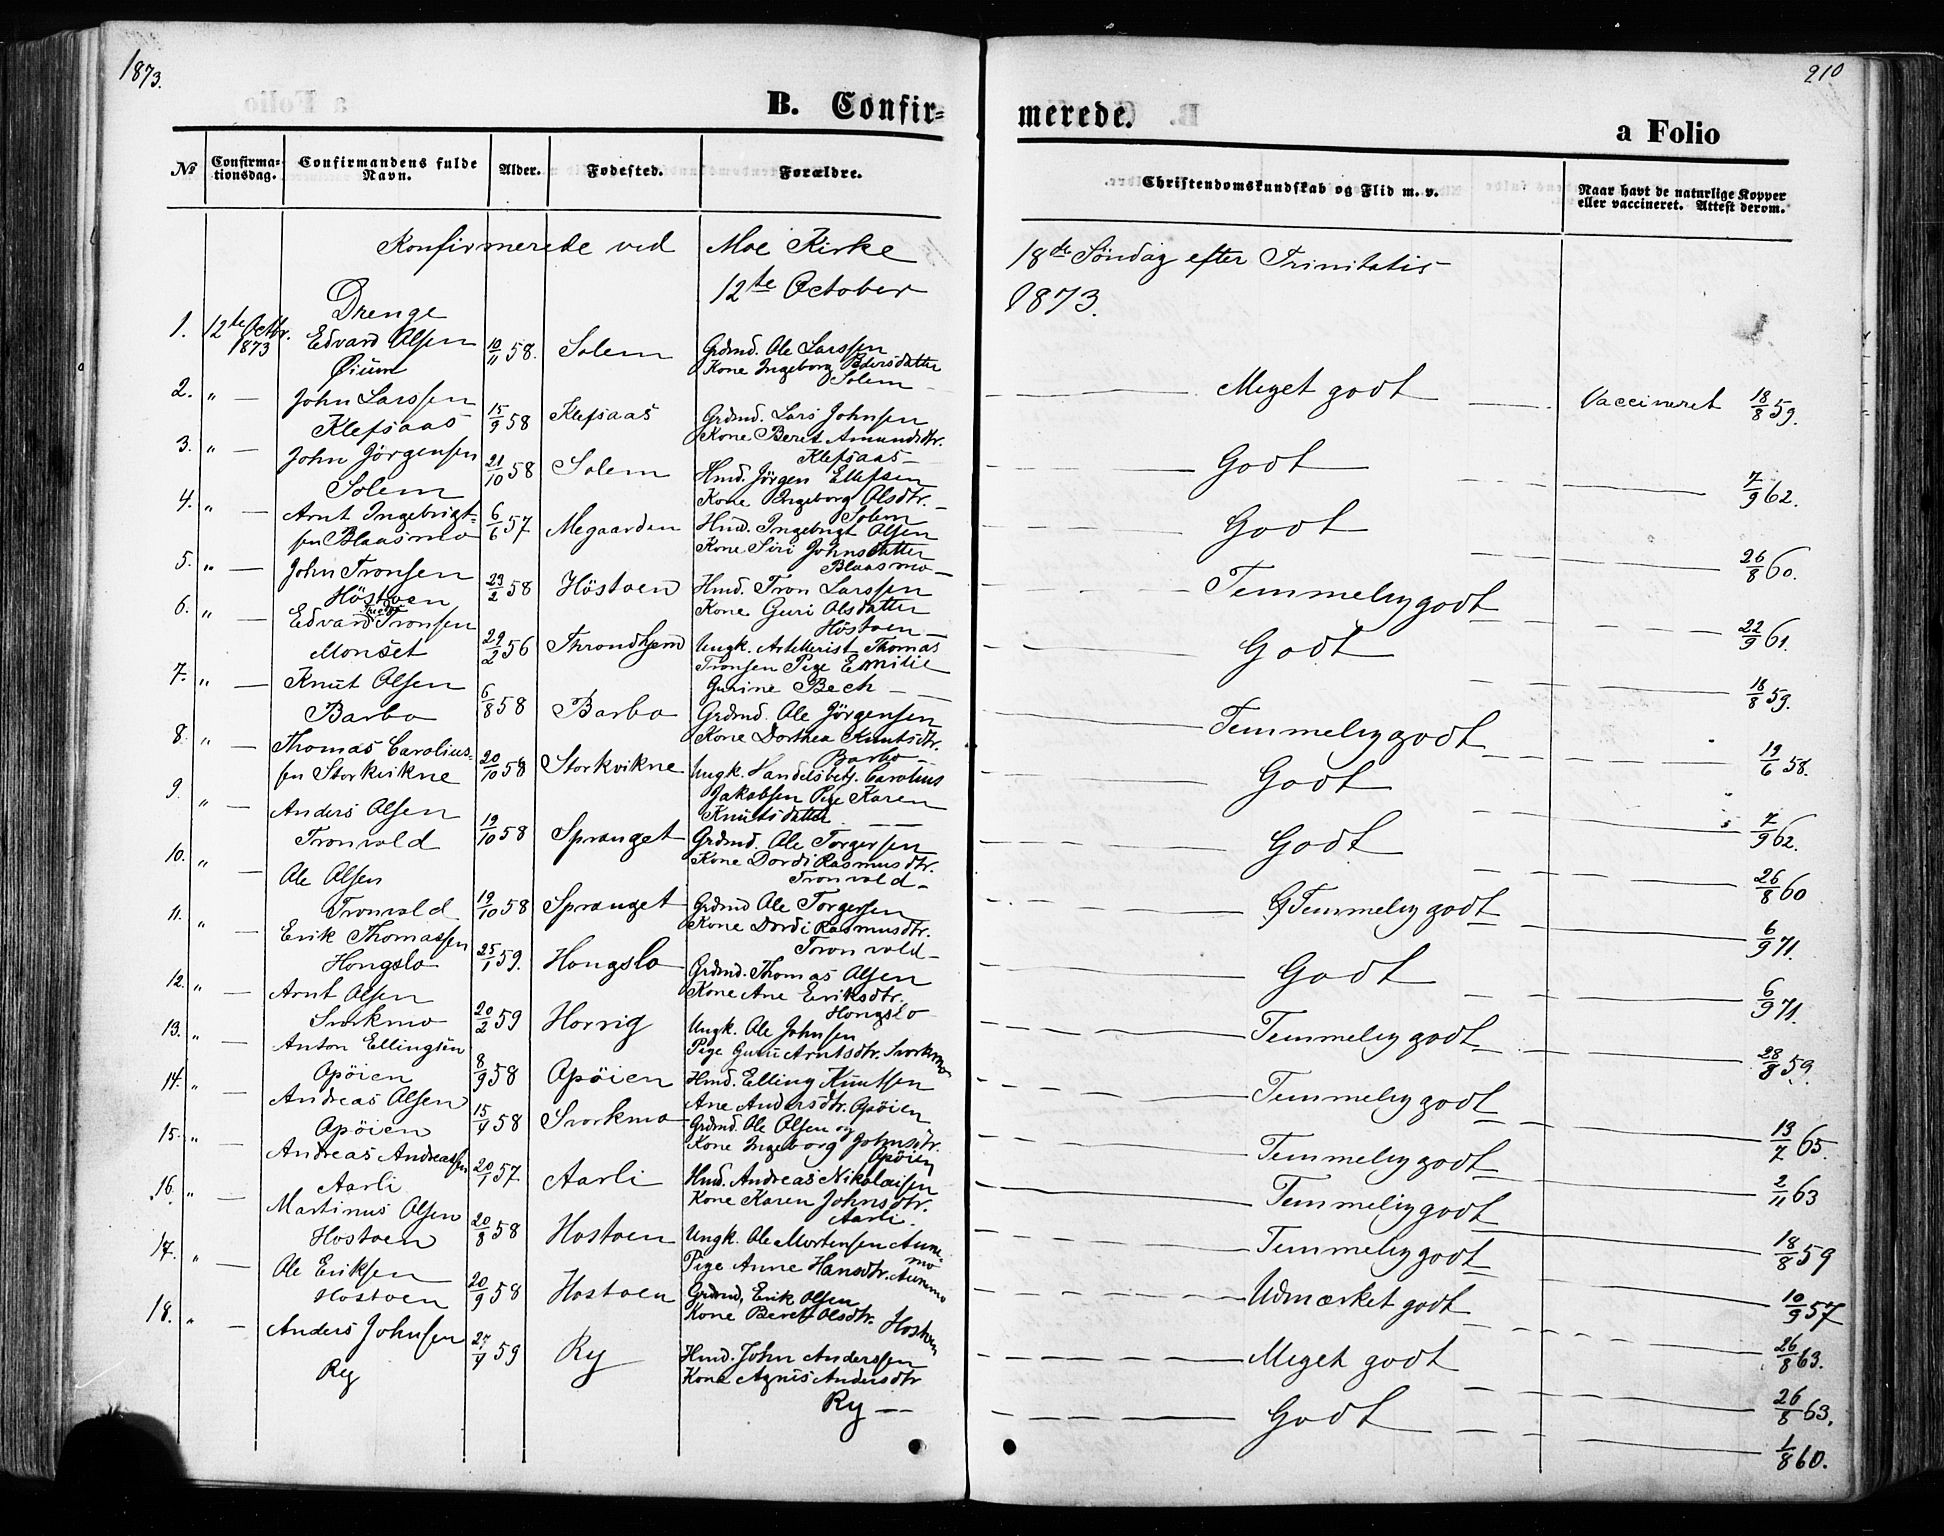 1873.
210
B. Confir=
merede.
a Folio
No
Confirma-
tionsdag.
Confirmandens fulde
Navn.
Alder.
Fødested.
Forældre.
Christendomskundskab og Flid m. v.
Naar havt de naturlige Kopper
eller vaccineret. Attest derom.
Konfirmerede ved Moe Kirke
18de Søndag efter Trinitatis
12te October
1873.
Drenge
1. 12te Octbr. Edvard Olsen 10/11 58. Solem Grdmd. Ole Larssen
1873 Øium Kone Ingeborg Pedersdatter
Solem
Meget godt Vaccineret 18/8 59.
2. " — John Larssen 15/9 58 Klefsaas Grdmd. Lars Johnsen
Klefsaas Kone Beret Amundsdtr.
Klefsaas —
Godt 7/9 62.
3. " — John Jörgensen 21/10 58 Solem Hmd. Jörgen Ellefsen
Solem Kone Ingeborg Olsdtr. —
Solem
Godt 26/8 60.
4. " — Arnt Ingebrigt- 6/6 57 Megaarden Hmd. Ingebrigt Olsen
sen Blaasmo Kone Siri Johnsdatter
Blaasmo —
Temmelig godt 22/9 61.
5. " — John Tronsen 23/2 58 Höstoen Hmd. Tron Larssen
Höstoen Kone Guri Olsdatter
Höstoen —
Godt 18/8 59.
6. " — Edvard Tronsen 29/2 56 Throndhjem Ungk. Artillerist Thomas
Monset Tronsen Pige Emilie
Gurine Bech — —
Temmelig godt 19/6 58.
7. " — Knut Olsen 6/8 58 Barbo Grdmd. Ole Jörgensen
Barbo Kone Dorthea Knutsdtr.
Barbo —
Godt 7/9 62.
8. " — Thomas Carolius- 20/10 58 Storkvikne Ungk. Handelsbetj. Carolius
sen Storkvikne Jakobsen Pige Karen
Knutsdatter — —
Godt 26/8 60
9. " — Anders Olsen 19/10 58 Spranget Grdmd. Ole Torgersen
Tronvold Kone Dordi Rasmusdtr.
Tronvold —
Temmelig godt 6/9 71.
10. " — Ole Olsen 19/10 58 Spranget Grdmd Ole Torgersen
Tronvold Kone Dordi Rasmusdtr.
Tronvold —
Godt 6/9 71.
11. " — Erik Thomassen 25/1 59. Hongslo Grdmd. Thomas Olsen
Hongslo Kone Ane Eriksdtr.
Hongslo
Temmelig godt 28/8 59.
12. " — Arnt Olsen 20/2 59 Horrig Ungk. Ole Johnsen
Svorkmo Pige Guru Arntsdtr. Svorkmo
Temmelig godt 13/7 65.
13. " — Anton Ellingsen 8/9 58 Apöien Hmd. Elling Knutsen
Apöien Ane Andersdtr. Apöien
Temmelig godt 2/11 63
14. " — Andreas Olsen 15/4 58 Svorkmo Grdmd. Ole Olsen og
Apöien Kone Ingeborg Johnsdtr.
Apöien
Temmelig godt 18/8 59
15. " — Andreas Andreassen 20/1 57. Aarli Hmd. Andreas Nikolaisen
Aarli Kone Karen Johnsdtr.
Aarli.
Temmelig godt 10/9 57
16. " — Martinus Olsen 20/8 58 Hostoen Ungk. Ole Mortensen Aune-
mo
Hostoen Pige Anne Hansdtr. Aunmo
Udmærket godt 26/8 63.
17. " — Ole Eriksen 20/9 58 Hostoen Grdmd, Erik Olsen
Hostoen Kone Beret Olsdtr. Hostoen
Meget godt 26/8 63.
18. " — Anders Johnsen 27/4 59 Ry Hmd. John Anderssen
Ry Kone Agnis Andersdtr
Ry —
Godt 1/8 60.